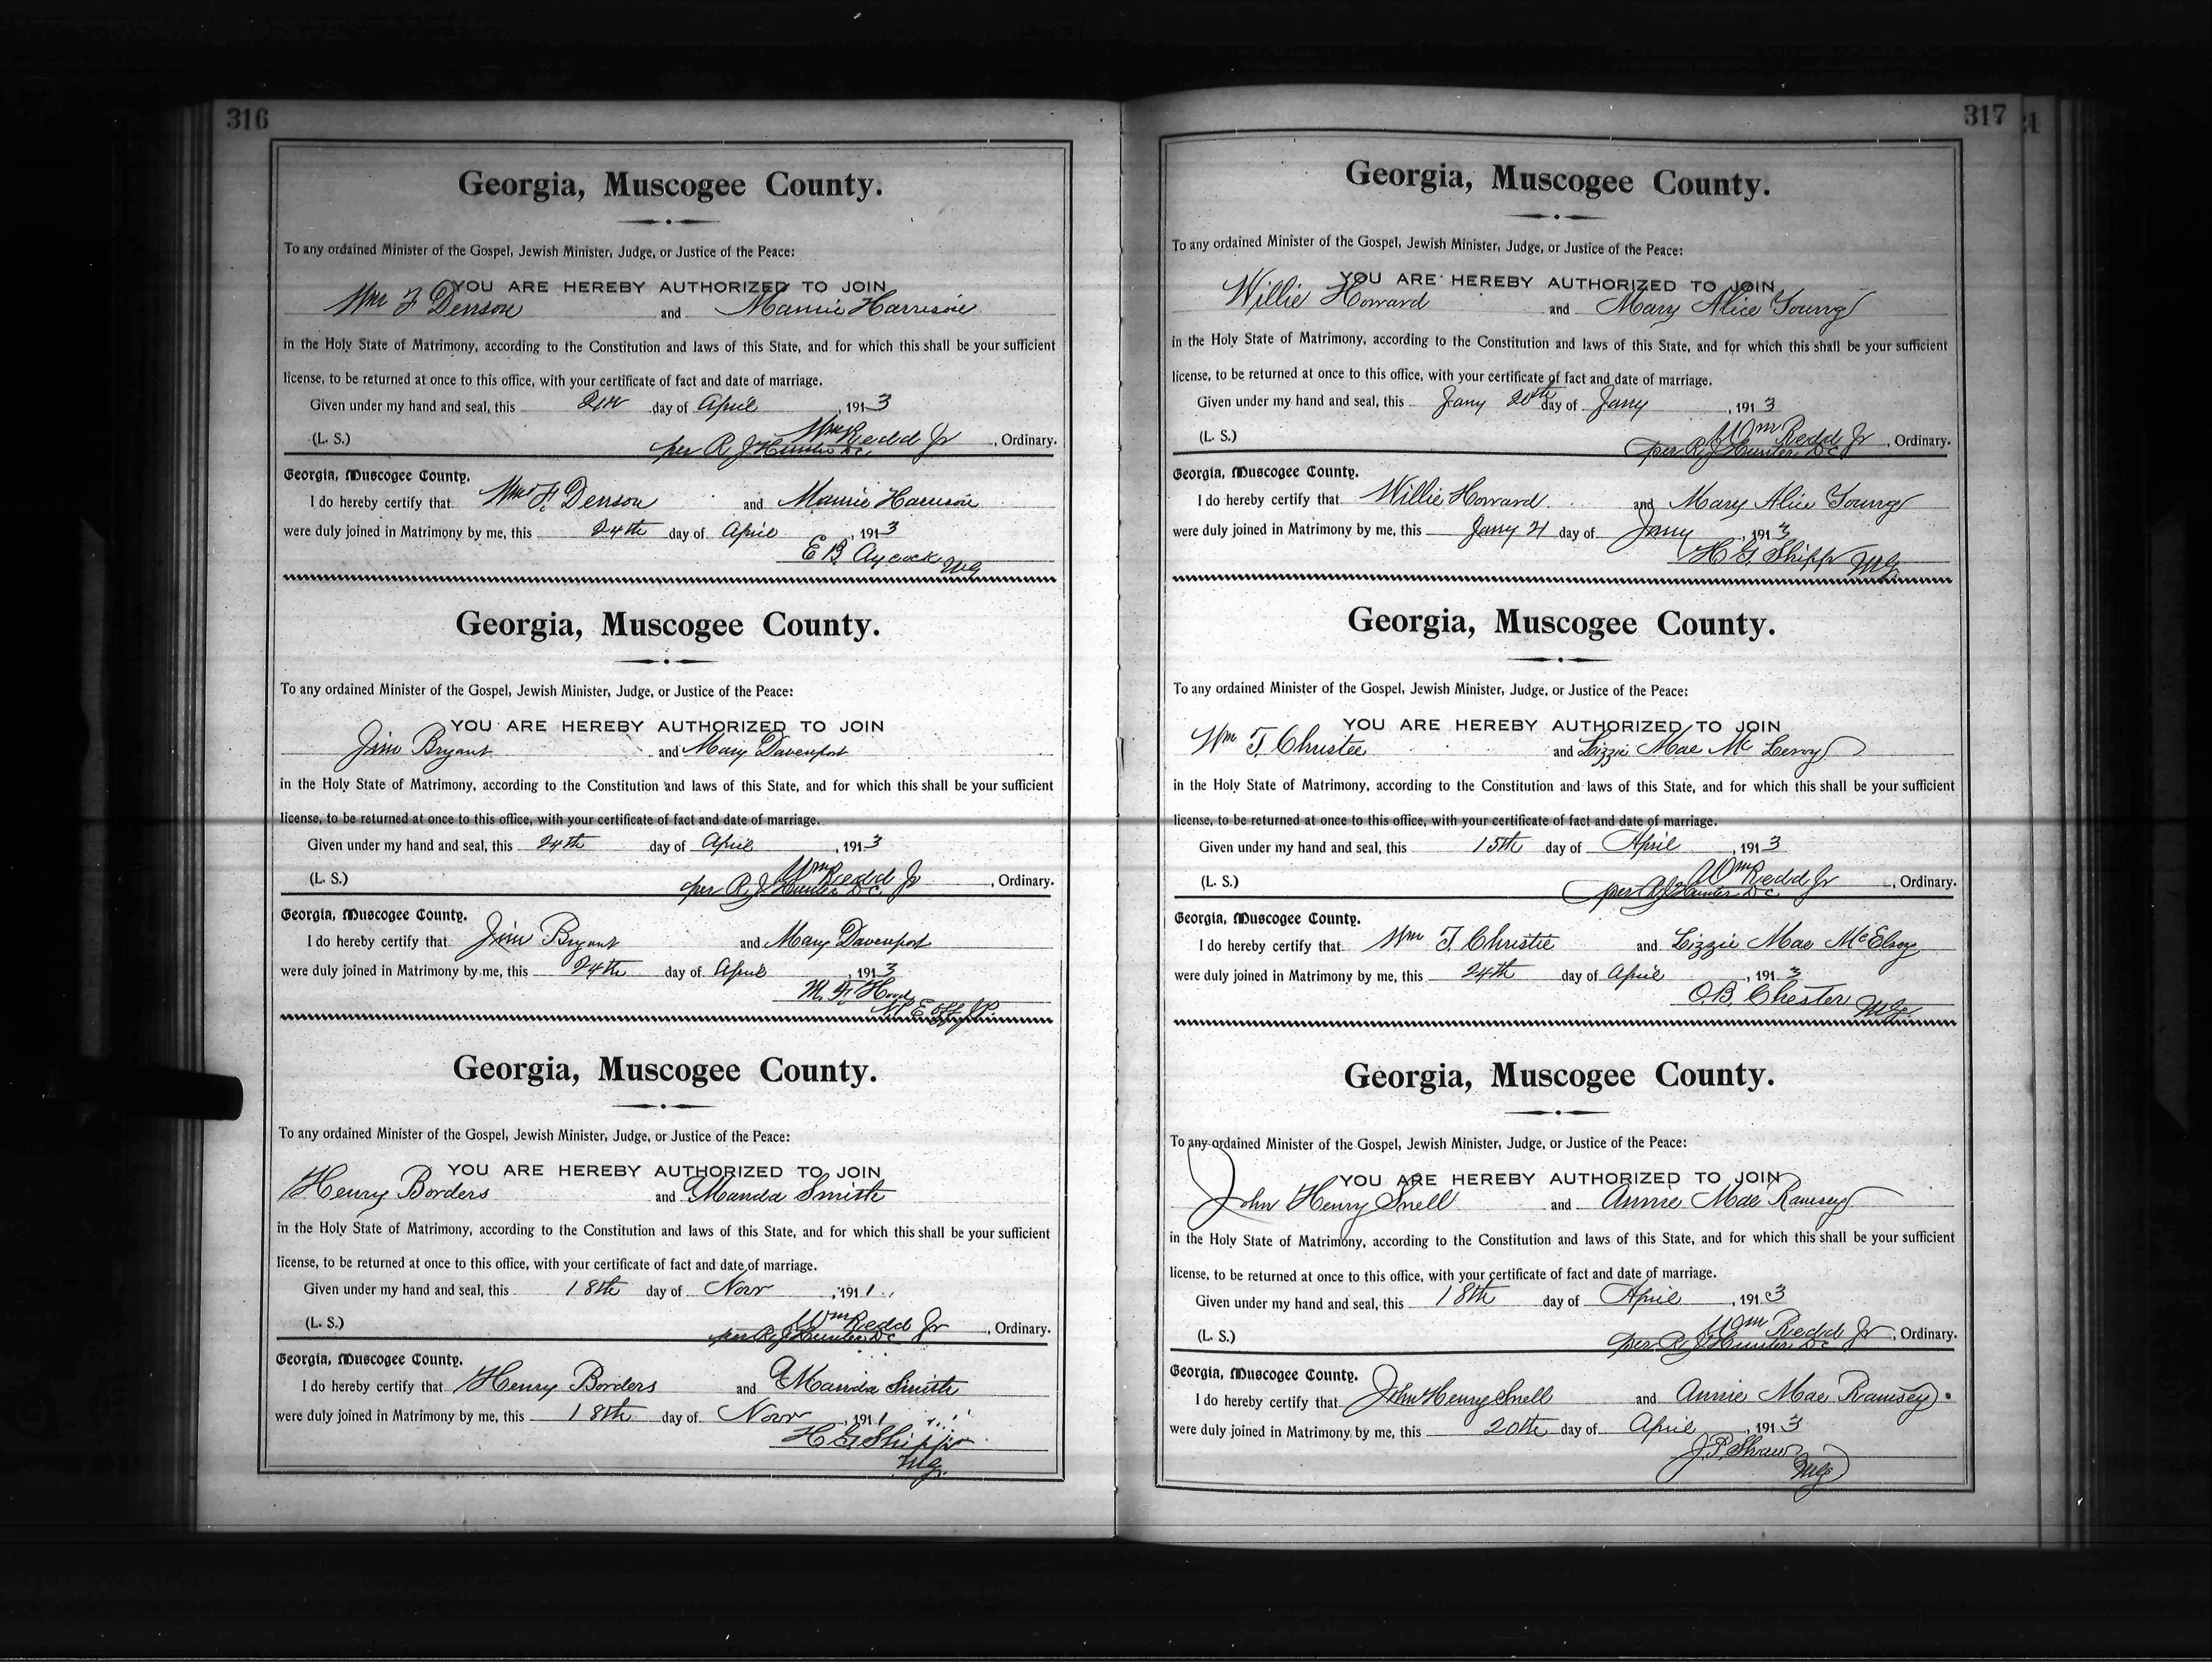 316
Georgia, Muscogee County.
To any ordained Minister of the Gospel, Jewish Minister, Judge, or Justice of the Peace:
YOU ARE HEREBY AUTHORIZED TO JOIN
Wm F Denson and Mamie Harrison
in the Holy State of Matrimony, according to the Constitution and laws of this State, and for which this shall be your sufficient
license, to be returned at once to this office, with your certificate of fact and date of marriage.
Given under my hand and seal, this day of April, 1913
(L. S.) Wm Redd Jr, Ordinary.
per R J Hunter D.C.
Georgia, Muscogee County.
I do hereby certify that Wm F. Denson and Mamie Harrison
were duly joined in Matrimony by me, this 24th day of April, 1913
E B. Aycock MG
Georgia, Muscogee County.
To any ordained Minister of the Gospel, Jewish Minister, Judge, or Justice of the Peace:
YOU ARE HEREBY AUTHORIZED TO JOIN
Jim Bryant and Mary Davenport
in the Holy State of Matrimony, according to the Constitution and laws of this State, and for which this shall be your sufficient
license, to be returned at once to this office, with your certificate of fact and date of marriage.
Given under my hand and seal, this 24th day of April, 1913
(L. S.) Wm Redd Jr, Ordinary.
per R J Hunter D.C.
Georgia, Muscogee County.
I do hereby certify that Jim Bryant and Mary Davenport
were duly joined in Matrimony by me, this 24th day of April, 1913
M. F. Hood
Georgia, Muscogee County.
To any ordained Minister of the Gospel, Jewish Minister, Judge, or Justice of the Peace:
YOU ARE HEREBY AUTHORIZED TO JOIN
Henry Borders and Manda Smith
in the Holy State of Matrimony, according to the Constitution and laws of this State, and for which this shall be your sufficient
license, to be returned at once to this office, with your certificate of fact and date of marriage.
Given under my hand and seal, this 18th day of Novr, 1911
(L. S.) Wm Redd Jr, Ordinary.
per R J Hunter D.C.
Georgia, Muscogee County.
I do hereby certify that Henry Borders and Manda Smith
were duly joined in Matrimony by me, this 18th day of Novr, 1911
H G Shipp
Mg.
317
Georgia, Muscogee County.
To any ordained Minister of the Gospel, Jewish Minister, Judge, or Justice of the Peace:
YOU ARE HEREBY AUTHORIZED TO JOIN
Willie Howard and Mary Alice Young
in the Holy State of Matrimony, according to the Constitution and laws of this State, and for which this shall be your sufficient
license, to be returned at once to this office, with your certificate of fact and date of marriage.
Given under my hand and seal, this Jany 20th day of Jany, 1913
(L. S.) Wm Redd Jr, Ordinary.
per R J Hunter D.C.
Georgia, Muscogee County.
I do hereby certify that Willie Howard and Mary Alice Young
were duly joined in Matrimony by me, this Jany 21 day of Jany, 1913
H G. Shipp Mg.
Georgia, Muscogee County.
To any ordained Minister of the Gospel, Jewish Minister, Judge, or Justice of the Peace:
YOU ARE HEREBY AUTHORIZED TO JOIN
Wm T. Christee and Lizzie Mae Mc Leroy
in the Holy State of Matrimony, according to the Constitution and laws of this State, and for which this shall be your sufficient
license, to be returned at once to this office, with your certificate of fact and date of marriage.
Given under my hand and seal, this 15th day of April, 1913
(L. S.) Wm Redd Jr, Ordinary.
per R J Hunter D.C.
Georgia, Muscogee County.
I do hereby certify that Wm T. Christie and Lizzie Mae McElroy
were duly joined in Matrimony by me, this 24th day of April, 1913
O.B. Chester Mg.
Georgia, Muscogee County.
To any ordained Minister of the Gospel, Jewish Minister, Judge, or Justice of the Peace:
YOU ARE HEREBY AUTHORIZED TO JOIN
John Henry Snell and Annie Mae Ramsey
in the Holy State of Matrimony, according to the Constitution and laws of this State, and for which this shall be your sufficient
license, to be returned at once to this office, with your certificate of fact and date of marriage.
Given under my hand and seal, this 18th day of April, 1913
(L. S.) Wm Redd Jr, Ordinary.
per R J Hunter D.C.
Georgia, Muscogee County.
I do hereby certify that John Henry Snell and Annie Mae Ramsey
were duly joined in Matrimony by me, this 20th day of April, 1913
J. P. Shaw
Mg